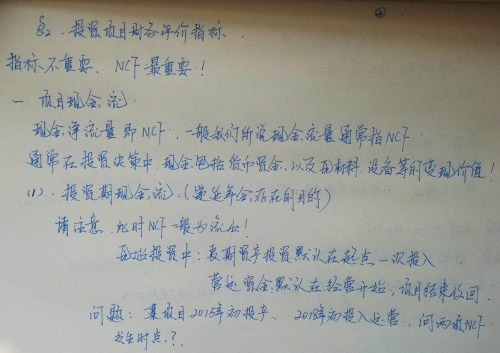 ④
§2. 投资项目财务评价指标.
指标不重要、NCF最重要!
一. 项目现金流.
现金净流量即NCF. 一般我们所说现金流量通常指NCF.
通常在投资决策中. 现金包括货币资金. 以及原材料. 设备等的变现价值!
(1). 投资期现金流. (递延年金存在的目的)
请注意. 此时NCF一般为流出!
原始投资中: 长期资产投资默认在起点一次投入
营运资金默认在经营开始, 项目结束收回.
问题: 某项目2015年初投产、2018年初投入运营, 问两项NCF
发生时点?